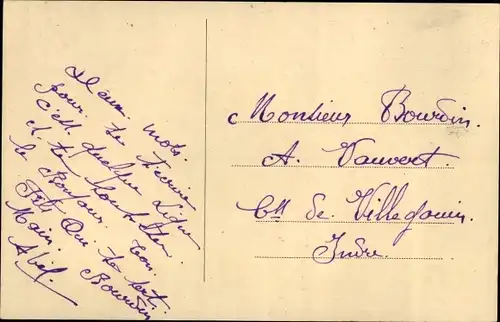 Deux mots.
pour te écrire
c'est quelque Lign
et te souhaiter
le Bonjour. Ton
Fils Qui. te sert.
Main. Bourdin
Abel.
Monsieur Bourdin.
A. Vauvert
Cne de Villegouin.
Indre.